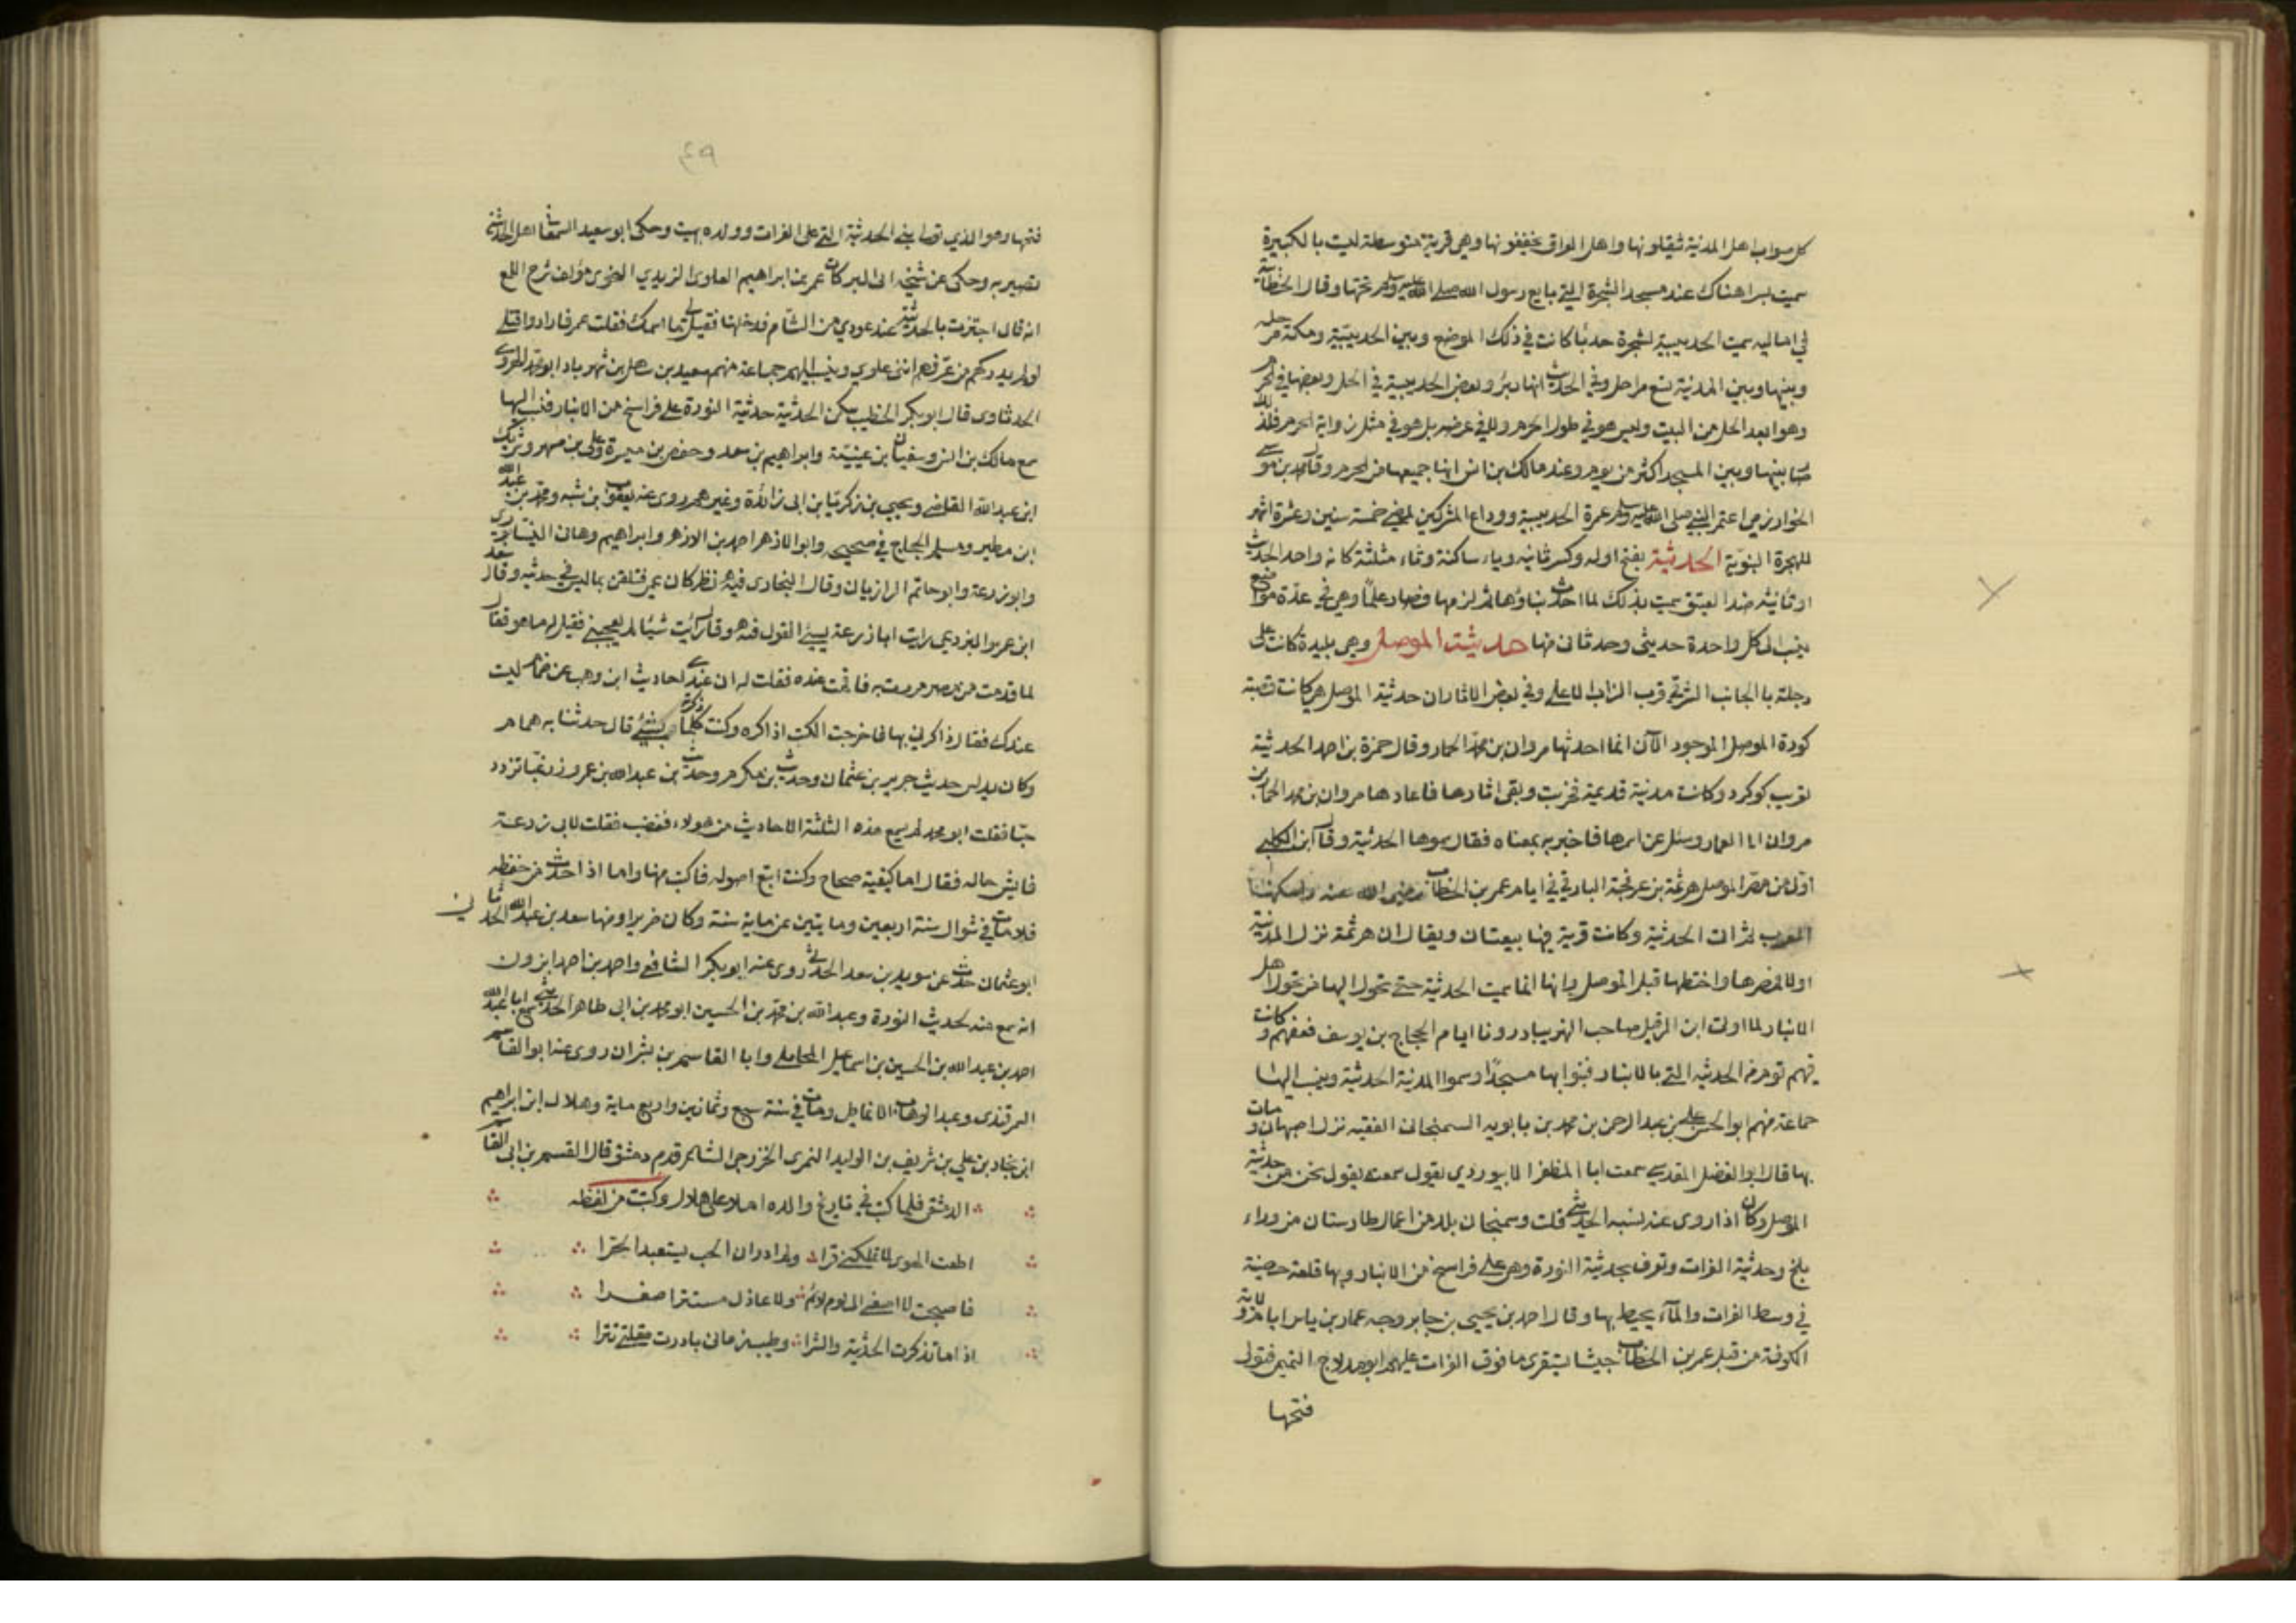 كل صواب اهل المدنية يثقلونها واهل العراق يخففونها وهي قرية متوسطة ليت بالكبيرة
سميت ببر هناك عند مسجد الشجرة التي بايع رسول الله صلى الله عليه وسلم تحتها وقال الخطابي
في اماليه سميت الحديبية لشجرة حدبا كانت في ذلك الموضع وبين الحديبية ومكة مرحلة
وبينها وبين المدنية تسع مراحل وفي الحديث انها بئر وبعض الحديبية في الحل وبعضها في الحرم
وهو ابعد الحل من البيت وليس هو في طول الحرم ولا في عرضه بل هو في مثل زاوية الحرم فلذلك
صار بينها وبين المسجد اكثر من يوم وعند مالك بن انس انها جميعها من الحرم وقال محمد بن موسى
الخوارزمي اعتمر النبي صلى الله عليه وسلم عمرة الحديبية ووداع المشركين لمضي خمسة سنين وعشرة اشهر
للهجرة النبوية الحديثة بفتح اوله وكسر ثانيه وياء ساكنة وثاء مثلثة كانه واحد الحديث
او تانيث ضد العتيق سميت بذلك لما احدث بناؤها ثم لزمها فصار علما وهي في عدة مواضع
ينسب الى كل واحدة حديثي وحدثاني منها حديثة الموصل وهي بليدة كانت على
دجلة بالجانب الشرقي قرب الزاب الاعلى وفي بعض الاثار ان حديثة الموصل هي كانت قصبة
كورة الموصل الموجود الآن انما احدثها مروان بن محمد الحمار وقال حمزة بن احمد الحديثة
تعريب كوكرد وكانت مدنية قديمة فخربت وبقي اثارها فاعادها مروان بن محمد الحمار بن
مروان الى العمار وسئل عن اسمها فاخبر به بمعناه فقال سموها الحديثة وقال ابن الكلبي
اول من مصر الموصل هرثمة بن عرفجة البارقي في ايام عمر بن الخطاب رضي الله عنه واسكنها
العرب ثم اتى الحديثة وكانت قرية فيها بيعتان ويقال ان هرثمة نزل المدنية
اولا فمصرها واختطها قبل الموصل وانها انما سميت الحديثة حتى تحول اليها من تحول اهل
الانبار لما اولت ابن الرفيل صاحب النهر ببادرونا ايام الحجاج بن يوسف فعفهم وكانت
فيهم قوم من الحديثة التي بالانبار فبنوا بها مسجدا وسموا المدنية الحديثة وينسب اليها
جماعة منهم ابو الحسن علي بن عبد الرحمن بن محمد بن بابويه السمنجاني الفقيه نزل اصبهان ومات
بها قال ابو الفضل المقدسي سمعت ابا المظفر الابيوردي يقول سمعته يقول نحن من حديثة
الموصل وكان اذا روى عنه نسبه الحديثي قلت وسمنجان بلد من اعمال طارستان من وراء
بلخ وحديثة الفرات وتعرف بحديثة النورة وهي على فراسخ من الانبار وبها قلعة حصينة
في وسط الفرات والمآء يحيط بها وقال احمد بن يحيى بن جابر وجه عمار بن ياسر ايام ولايته
الكوفة من قبل عمر بن الخطاب جيشا يستقري ما فوق الفرات عليهم ابو مدلاج التميمي فتولى
فتحها
٤٩
فتحها وهو الذي تولى بناء الحديثة التي على الفرات وولده بهيت وحكى ابو سعيد السمعاني اهل الحديثة
نصيرية وحكى عن شيخه ابي البركات عمر بن ابراهيم العلوي الزيدي النحوي مؤلف شرح اللمع
انه قال اجتزت بالحديثة عند عودي من الشام فدخلتها فقيل لي ما اسمك فقلت عمر فارادوا قتلي
لو لم يدركهم من عرفهم انني علوي وينسب اليهم جماعة منهم سعيد بن سهل بن شهريار ابو محمد الهروي
الحدثاوي قال ابو بكر الخطيب سكن الحديثة حديثة النورة على فراسخ من الانبار فنسب اليها
سمع مالك بن انس وسفيان بن عيينة وابراهيم بن سعد وحفص بن ميسرة وعلي بن مسهر وشريك
ابن عبد الله القاضي ويحيى بن زكريا بن ابي زائدة وغيرهم روى عنه يعقوب بن شيبه ومحمد بن عبد الله
ابن مطير ومسلم الحجاج في صحيحه وابو الازهر احمد بن الازهر وابراهيم وهاني النيسابوري
وابو زرعة وابو حاتم الرازيان وقال البخاري فيه نظر كان عمي فتلقن بما ليس في حديثه وقال سعد
ابن عمرو البرذعي رايت ابا زرعة يسيئ القول فيه وقال رايت شيئا لم يعجبني فقيل له ما هو فقال
لما قدمت من مصر مررت به فاقمت عنده فقلت له ان عندي احاديث ابن وهب عن ضمام ليت
عندك فقال ذاكرني بها فاخرجت الكتب اذاكره وكنت كلما ذكرته بشيئ قال حدثنا به همام
وكان يدلس حديث حريز بن عثمان وحديث بن مكرم وحديث بن عبد الله بن عمرو زر غبا تزدد
حبا فقلت ابو محمد لم يسمع هذه الثلثة الاحاديث من هولاء فغضب فقلت لابي زرعة
فايش حاله فقال اما كتبه صحاح وكنت اتبع اصوله فاكتب منها واما اذا حدث من حفظه
فلا مات في شوال سنة اربعين ومايتين عن ماية سنة وكان ضريرا ومنها سعد بن عبد الله الحدثاني
ابو عثمان حدث عن سويد بن سعد الحدثي روى عنه ابو بكر الشافعي واحمد بن احمد ابزون
انه سمع منه لحديث النورة وعبد الله بن محمد بن الحسين ابو محمد بن ابي طاهر الحديثي سمع ابا عبد الله
احمد بن عبد الله بن الحسين بن اسماعيل المحاملي وابا القاسم بن بشران روى عنه ابو القاسم
السمرقندي وعبد الوهاب الانماطي ومات في سنة سبع وثمانين واربع ماية وهلال ابن ابراهيم
ابن نجاد بن علي بن شريف بن الوليد النمري الخزرجي الشاعر قدم دمشق قال القسم بن ابي القاسم
الدمشقي فيما كتب في تاريخ والده املاء علي هلال وكتبت من لفظه
اطعت الهوى لما تملكني قسرا ولم ادر ان الحب يستعبد الحرا
فاصبحت لا اصغي الى لوم لائم ولا عاذل مستترا صفرا
اذا ما تذكرت الحديثة والشرا وطيب زماني بادرت مقلتي تترا